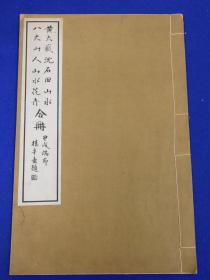 黄大癡沈石田山水
八大山人山水花卉合冊
甲戌端節